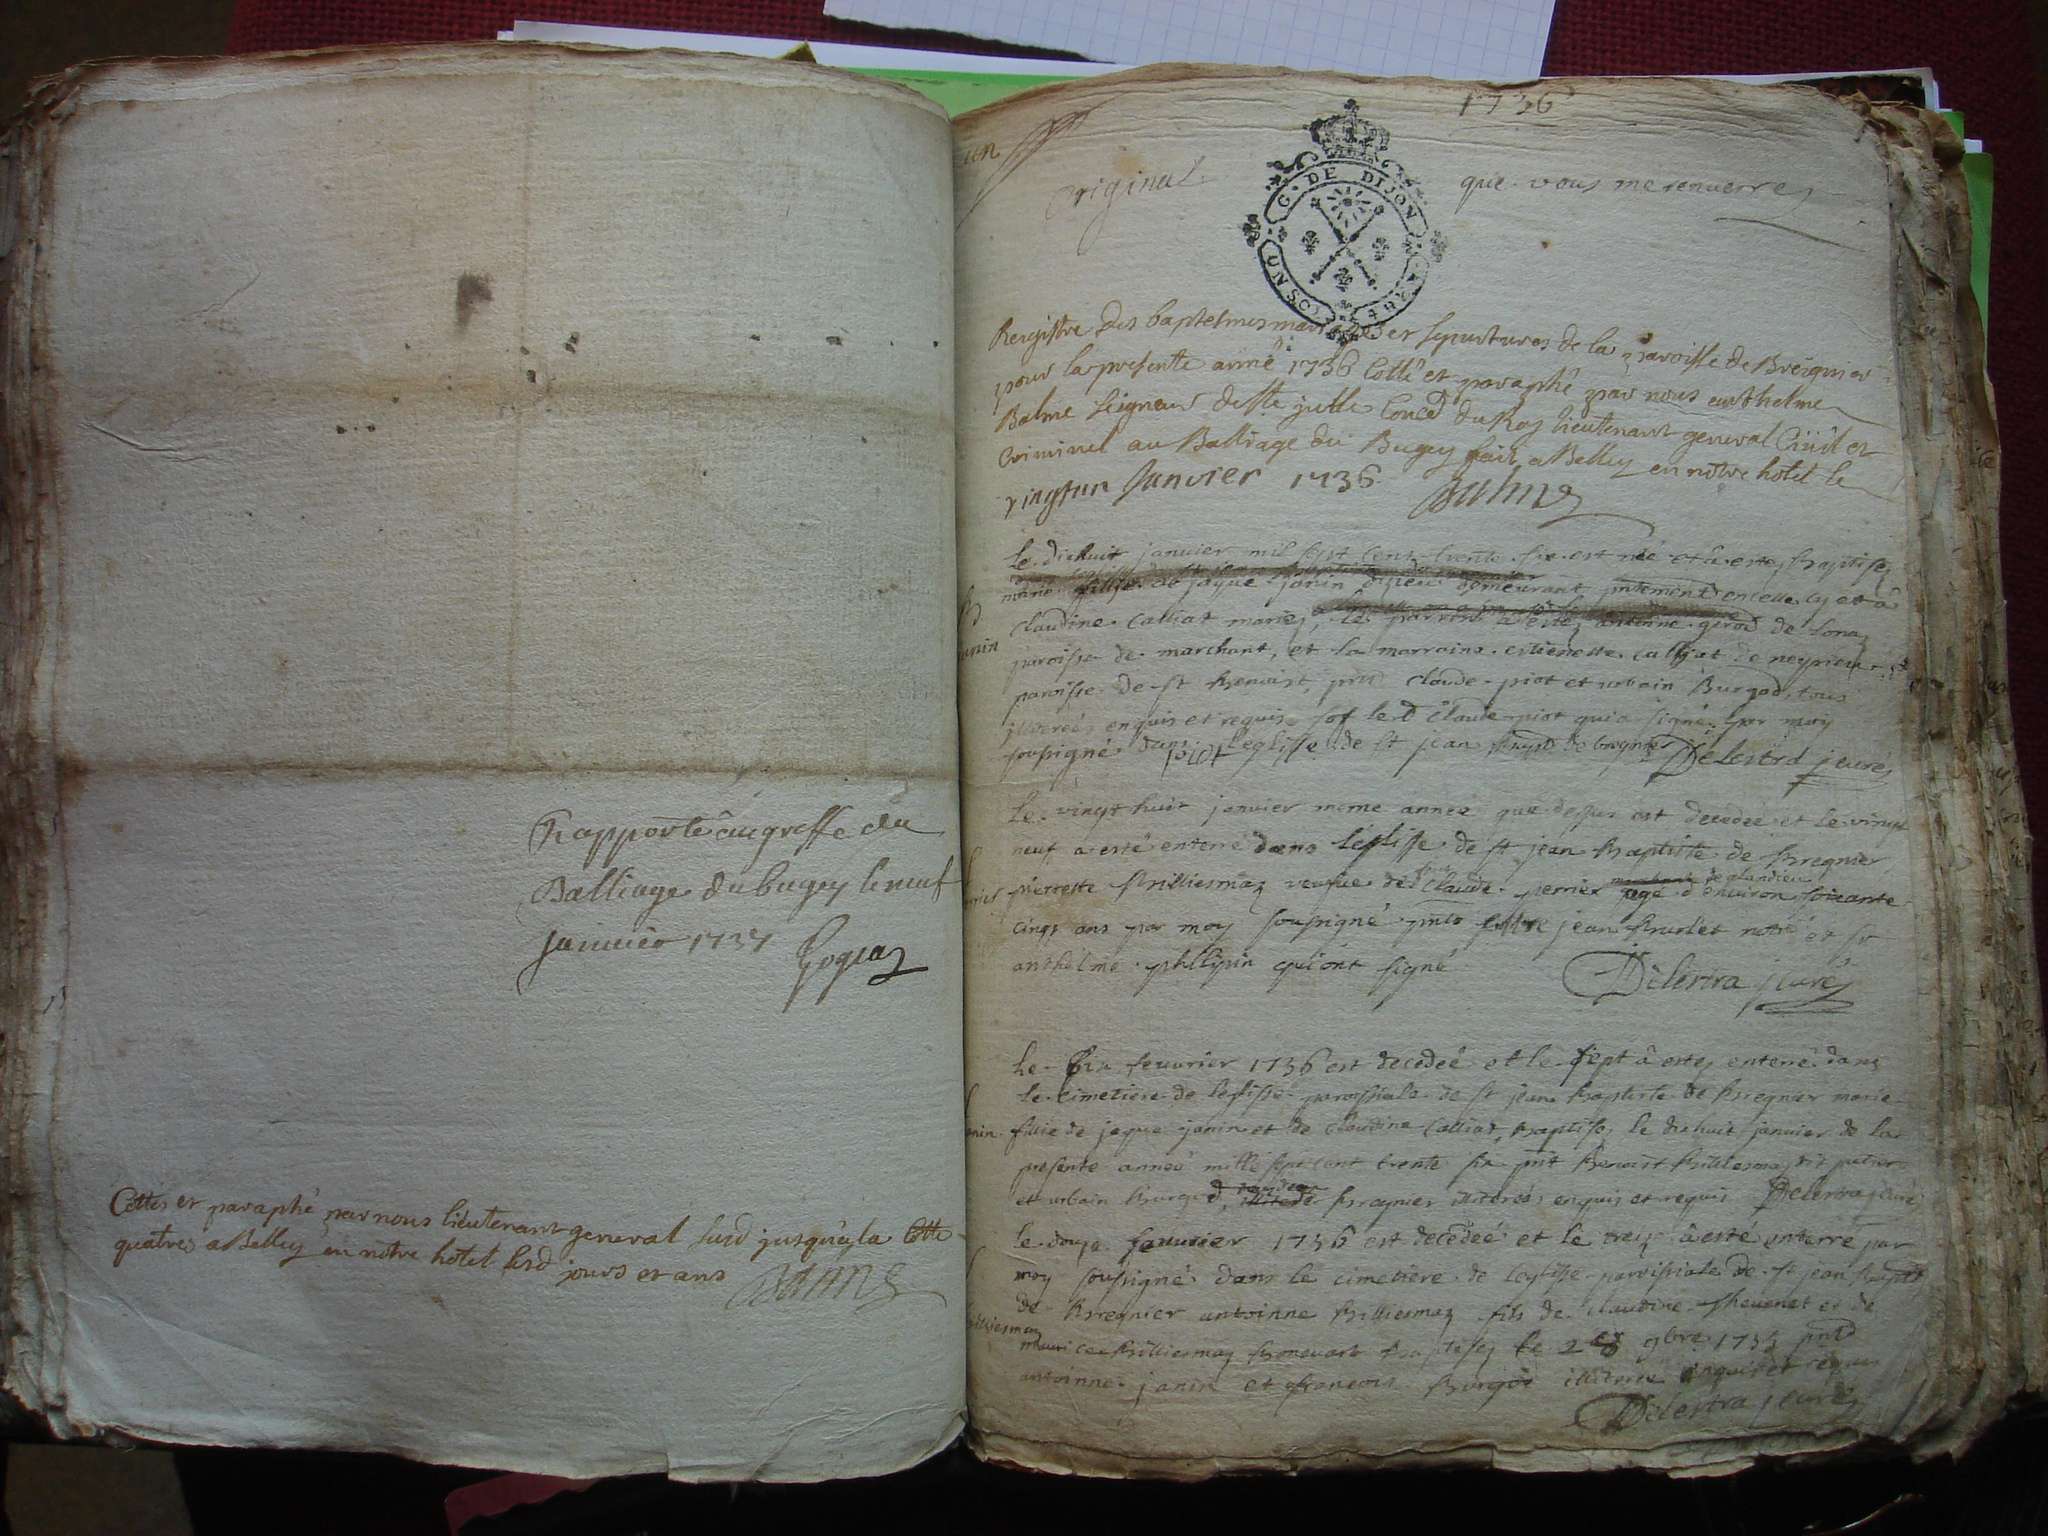 Rapporté au greffe du
Balliage du bugey le neuf
janvier 1737
Cottés et paraphé par nous lieutenant general susd jusqu'a la Cotte
quatres a Belley en nôtre hotel lesd jours et ans
Balme
1736
un
Original
que vous me renverrez
G. DE DIJON
UN SOL
Rengistre des baptesmes mariages et sepultures de la paroisse de Breignier
pour la presente anné 1736 Cotté et paraphé par nous anthelme
Balme Seigneur de Ste julle Concer du Roy lieutenant general Civil et
Criminel au Balliage du Bugey fait a Belley en nôtre hotel le
vingt un Janvier 1736 Balme
Le dixhuit janvier mil sept cens trente six est née et à estez baptisez
marie fillie de jaque janin demeurant et à
Claudine Calliat mariez, le parrein a esté antoinne girod de Lona
paroisse de marchant, et la marraine estienette Calliat de neyrieu
paroisse de st Benoist, pnt Claude piot et urbain Burgod, tous
illiterés enquis et requis sof led Claude piot qui a signé par moy
soussigné dans l'eglisse de st jean bapt de bregnier Delestra jcuré
piot
janin
Le vingt huit janvier meme annee que dessus est decedeé et le vingt
neuf a esté enterré dans l'eglisse de st jean Baptiste de Bregnier
pierrette Billiesmaz veufve de Claude perrier agé d'environ soixante
cinqt ans par moy soussigné pnts jean Brunlet notre et sr
anthelme phllipin qui ont signé Delestra jcuré
Le six feuvrier 1736 est decedeé et le sept à estez enterré dans
le cimetiere de leglisse paroissiale de st jean Baptiste de Bregnier marie
fillie de jaque janin et de Claudine Calliat, baptisé le dixhuit janvier de la
presente anneé mille sept cent trente six pnt Benoist Billiesmaz
et urbain Burgod, Bregnier illiterés enquis et requis Delestra jcuré
janin
le douze feuvrier 1736 est decedeé et le treiz à esté enterré par
moy soussigné dans le cimetiere de leglisse paroissiale de st jean Bapt
de Bregnier antoinne Billiesmaz fils de Claudine thevenet et de
maurice Billiesmaz baptisez le 9bre 1735 pntd
antoinne janin et francois Burgod illiterés enquis et requis
Delestra jcuré
Billiesmaz